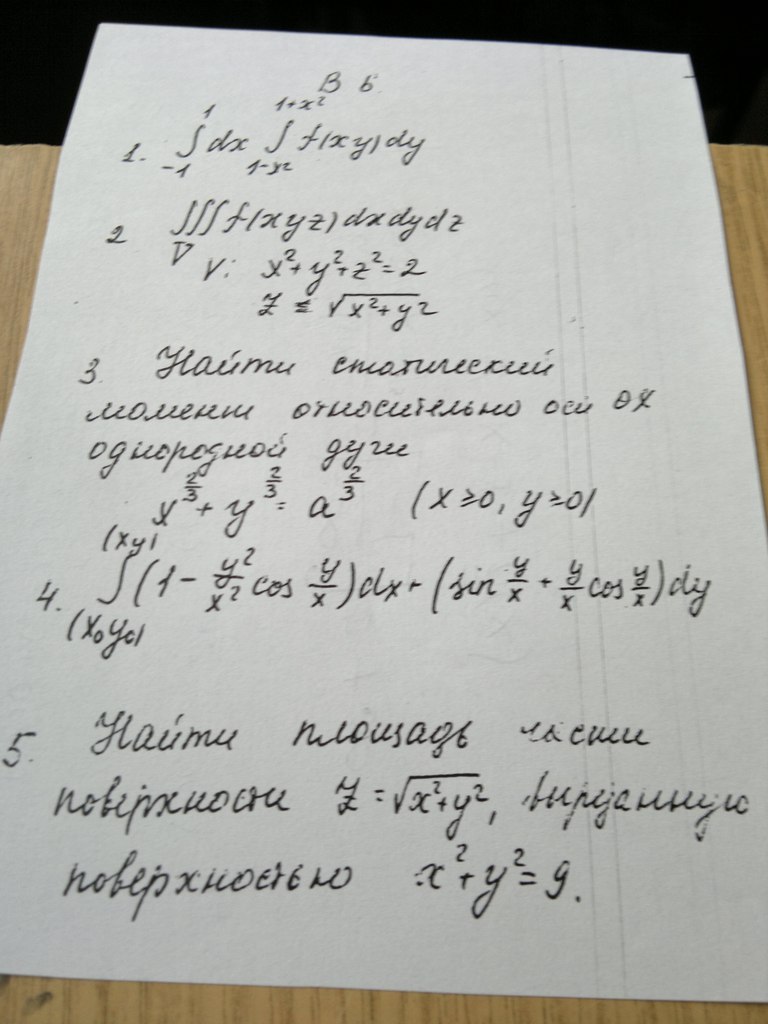 В 6
1. ∫₋₁¹ dx ∫₁₋ₓ²¹⁺ˣ² f(xy)dy
2 ∭ f(xyz)dxdydz
V V: x²+y²+z²=2
z = √x²+y²
3. Найти статический
момент относительно оси OX
однородной дуги
x^(2/3) + y^(2/3) = a^(2/3) (x≥0, y≥0)
(xy)
4. ∫(1 - y²/x² cos y/x)dx + (sin y/x + y/x cos y/x)dy
(x₀y₀)
5. Найти площадь части
поверхности z = √x²+y², вырезанную
поверхностью x²+y²=9.